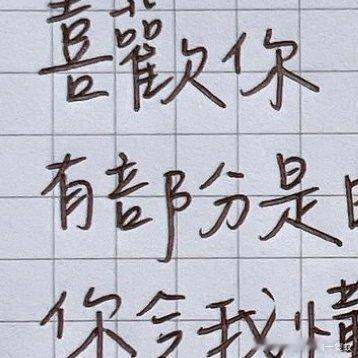 喜歡你
有部份是
你令我